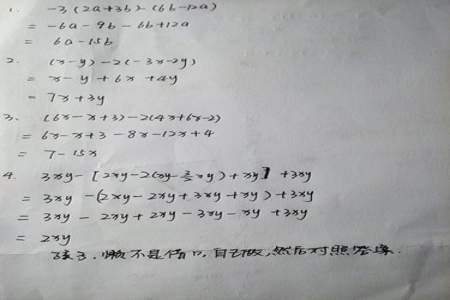 1. -3(2a+3b)-(6b-12a)
= -6a-9b-6b+12a
= 6a-15b
2. (x-y)-2(-3x-2y)
= x-y+6x+4y
= 7x+3y
3. (6x-x+3)-2(4x+6x-2)
= 6x-x+3-8x-12x+4
= 7-15x
4. 3xy-[2xy-2(xy-3/2xy)+xy]+3xy
= 3xy-(2xy-2xy+3xy+xy)+3xy
= 3xy-2xy+2xy-3xy-xy+3xy
= 2xy
孩子,懒不是借口,自己做,然后对照答案.